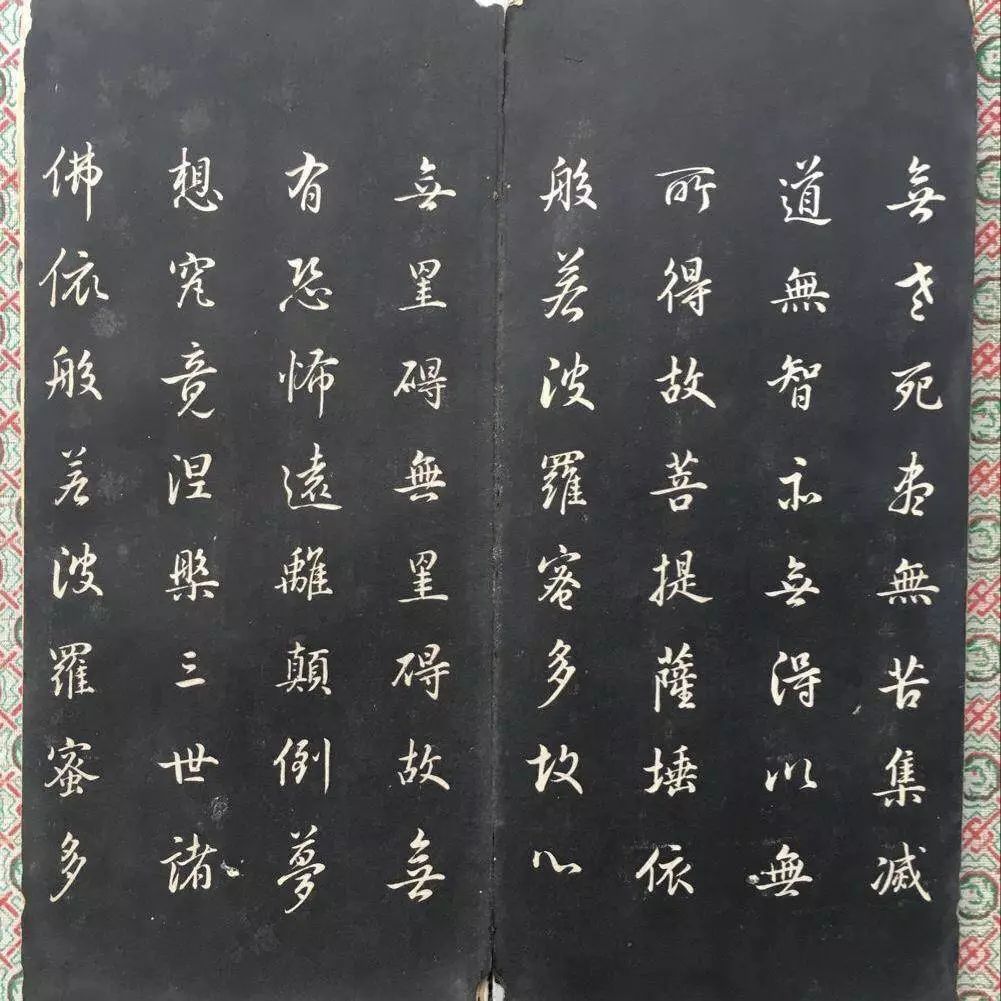 無老死盡無苦集滅
道無智亦無得以無
所得故菩提薩埵依
般若波羅蜜多故心
無罣碍無罣碍故無
有恐怖遠離顛倒夢
想究竟涅槃三世諸
佛依般若波羅蜜多